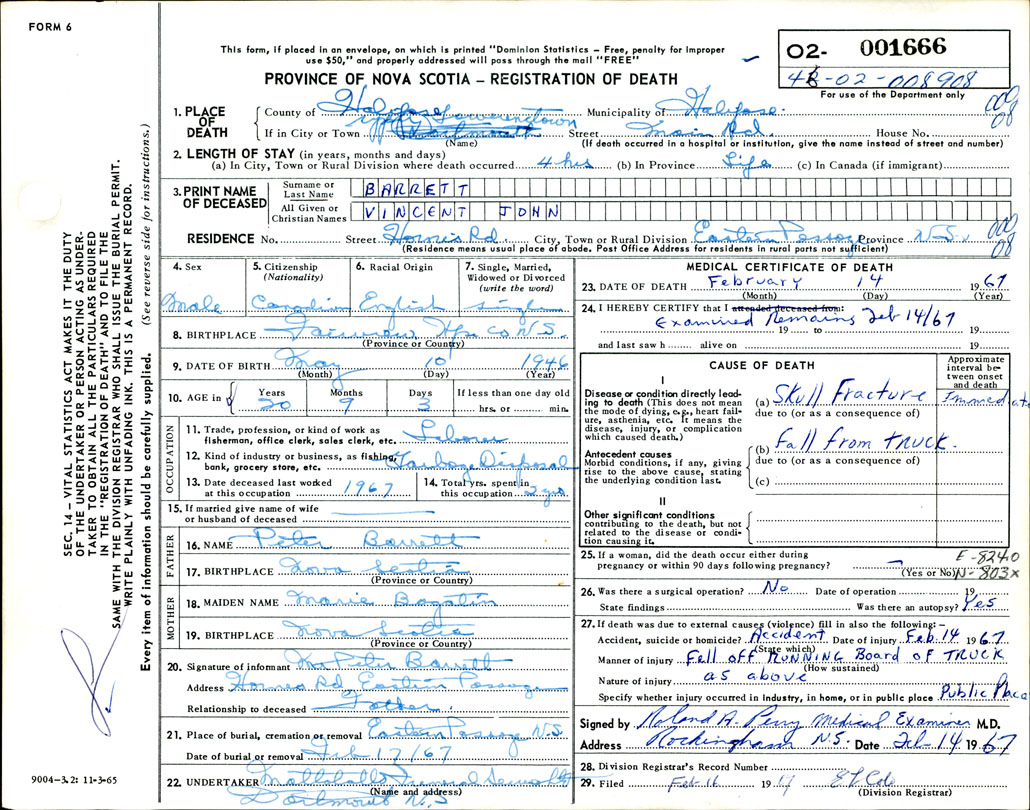 FORM 6
This form, if placed in an envelope, on which is printed "Dominion Statistics – Free, penalty for improper
use $50," and properly addressed will pass through the mail "FREE"
PROVINCE OF NOVA SCOTIA – REGISTRATION OF DEATH
02- 001666
-02-008908
For use of the Department only
000
08
1. PLACE OF DEATH
County of Halifax Municipality of Halifax
If in City or Town Upper Lawrencetown Street Main Rd. House No.
(Name) (If death occurred in a hospital or institution, give the name instead of street and number)
2. LENGTH OF STAY (in years, months and days)
(a) In City, Town or Rural Division where death occurred 4 hrs (b) In Province Life (c) In Canada (if immigrant)
3. PRINT NAME OF DECEASED
Surname or Last Name BARRETT
All Given or Christian Names VINCENT JOHN
RESIDENCE No. Street Hornes Rd. City, Town or Rural Division Eastern Passage Province N.S.
(Residence means usual place of abode. Post Office Address for residents in rural parts not sufficient)
000
08
4. Sex
Male
5. Citizenship (Nationality)
Canadian
6. Racial Origin
English
7. Single, Married, Widowed or Divorced (write the word)
single
8. BIRTHPLACE Fairview, Hfx Co N.S.
(Province or Country)
9. DATE OF BIRTH May 10 1946
(Month) (Day) (Year)
10. AGE in Years Months Days If less than one day old
20 9 3 hrs. or min.
OCCUPATION
11. Trade, profession, or kind of work as fisherman, office clerk, sales clerk, etc. Laborer
12. Kind of industry or business, as fishing, bank, grocery store, etc. Garbage Disposal
13. Date deceased last worked at this occupation 1967
14. Total yrs. spent in this occupation 2 yrs
15. If married give name of wife or husband of deceased
FATHER
16. NAME Peter Barrett
17. BIRTHPLACE Nova Scotia
(Province or Country)
MOTHER
18. MAIDEN NAME Marie
19. BIRTHPLACE Nova Scotia
(Province or Country)
20. Signature of informant Peter Barrett
Address Hornes Rd Eastern Passage
Relationship to deceased Father.
21. Place of burial, cremation or removal Eastern Passage N.S.
Date of burial or removal Feb 17/67
22. UNDERTAKER Mattatall's Funeral
(Name and address)
Dartmouth N.S
MEDICAL CERTIFICATE OF DEATH
23. DATE OF DEATH February 14 1967
(Month) (Day) (Year)
24. I HEREBY CERTIFY that I attended deceased from:
Examined Remains Feb 14/67
19 to 19
and last saw h alive on 19
CAUSE OF DEATH
Approximate interval between onset and death
I
Disease or condition directly leading to death (This does not mean the mode of dying, e.g., heart failure, asthenia, etc. It means the disease, injury, or complication which caused death.)
(a) Skull Fracture Immediate
due to (or as a consequence of)
Antecedent causes
Morbid conditions, if any, giving rise to the above cause, stating the underlying condition last.
(b) Fall from TRUCK.
due to (or as a consequence of)
(c)
II
Other significant conditions contributing to the death, but not related to the disease or condition causing it.
25. If a woman, did the death occur either during pregnancy or within 90 days following pregnancy?
(Yes or No)
E-824.0
N-803x
26. Was there a surgical operation? No Date of operation 19
State findings Was there an autopsy? Yes
27. If death was due to external causes (violence) fill in also the following: –
Accident, suicide or homicide? Accident Date of injury Feb. 14 1967
(State which)
Manner of injury Fell off RUNNING Board of TRUCK
(How sustained)
Nature of injury as above
Specify whether injury occurred in industry, in home, or in public place Public Place
Signed by Roland A. Perry Medical Examiner M.D.
Address Rockingham N.S. Date Feb-14 1967
28. Division Registrar's Record Number
29. Filed Feb 16 19
(Division Registrar)
SEC. 14 – VITAL STATISTICS ACT MAKES IT THE DUTY
OF THE UNDERTAKER OR PERSON ACTING AS UNDER-
TAKER TO OBTAIN ALL THE PARTICULARS REQUIRED
IN THE "REGISTRATION OF DEATH" AND TO FILE THE
SAME WITH THE DIVISION REGISTRAR WHO SHALL ISSUE THE BURIAL PERMIT.
WRITE PLAINLY WITH UNFADING INK. THIS IS A PERMANENT RECORD.
Every item of information should be carefully supplied. (See reverse side for instructions.)
9004-3.2: 11-3-65